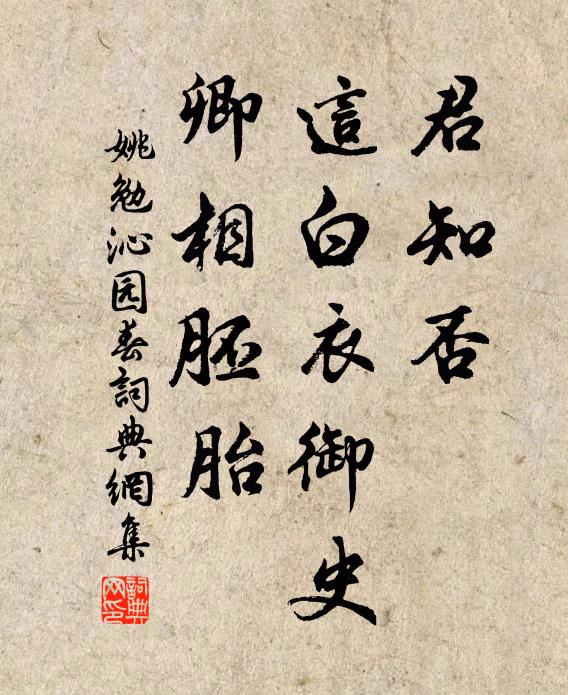 君知否
這白衣御史
卿相胚胎
姚勉沁园春詞典網集
詞典网印